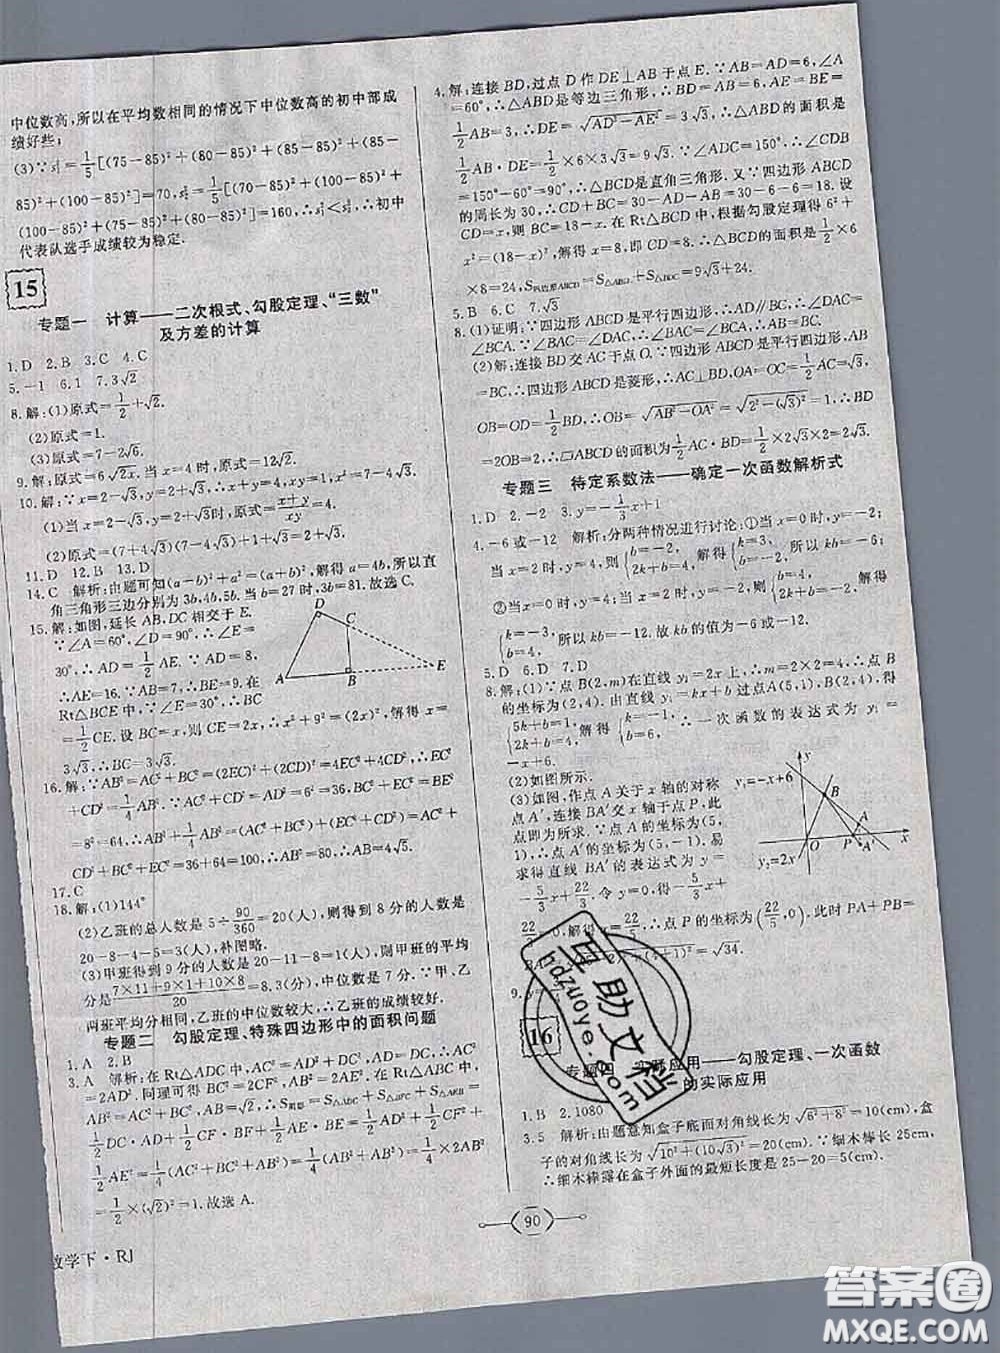 中位数高,所以在平均数相同的情况下中位数高的初中部成
绩好些;
(3)∵s₁²=1/5[(75-85)²+(80-85)²+(85-85)²+(85-
85)²+(100-85)²]=70,s₂²=1/5[(70-85)²+(100-85)²+
(100-85)²+(75-85)²+(80-85)²]=160,∴s₁²<s₂²,∴初中
代表队选手成绩较为稳定.
15
专题一 计算——二次根式、勾股定理、“三数”
及方差的计算
1.D 2.B 3.C 4.C
5.-1 6.1 7.3√2
8.解:(1)原式=1/2+√2.
(2)原式=1.
(3)原式=7-2√6.
9.解:原式=6√2x.当x=4时,原式=12√2.
10.解:∵x=2-√3,y=2+√3,∴x+y=4,xy=1.
(1)当x=2-√3,y=2+√3时,原式=(x+y)/xy=4.
(2)原式=(7+4√3)(7-4√3)+1+2+√3=4+√3.
11.D 12.B 13.D
14.C 解析:由题可知(a-b)²+a²=(a+b)²,解得a=4b,所以直
角三角形三边分别为3b,4b,5b.当b=27时,3b=81.故选C.
15.解:如图,延长AB,DC相交于E.
∵∠A=60°,∠D=90°,∴∠E=
30°,∴AD=1/2AE.∵AD=8,
∴AE=16.∵AB=7,∴BE=9.在
Rt△BCE中,∵∠E=30°,∴BC
=1/2CE.设BC=x,则CE=2x,∴x²+9²=(2x)²,解得x=
3√3.∴BC=3√3.
D
C
A
B
E
16.解:∵AB²=AC²+BC²=(2EC)²+(2CD)²=4EC²+4CD²,∴EC²
+CD²=1/4AB².∵AC²+CD²=AD²=6²=36,BC²+EC²=BE²
=8²=64,∴AB²+1/4AB²=(AC²+BC²)+(EC²+CD²)=AC²+
CD²+BC²+EC²=36+64=100,∴AB²=80,∴AB=4√5.
17.C
18.解:(1)144°
(2)乙班的总人数是5÷90/360=20(人),则得到8分的人数是
20-8-4-5=3(人),补图略.
(3)甲班得到9分的人数是20-11-8=1(人),则甲班的平均
分是(7×11+9×1+10×8)/20=8.3(分),中位数是7分.∵甲、乙
两班平均分相同,乙班的中位数较大,∴乙班的成绩较好.
专题二 勾股定理、特殊四边形中的面积问题
1.A 2.B
3.A 解析:在Rt△ADC中,AC²=AD²+DC²,且AD=DC,∴AC²=
2AD².同理可得BC²=2CF²,AB²=2AE².在Rt△ABC中,AB²=
1/2DC·AD+1/2CF·BF+1/2AE·BE=1/2AD²+1/2CF²+
1/2AE²=1/4(AC²+BC²+AB²)=1/4(AB²+AB²)=1/4×2AB²
=1/2×(√2)²=1.故选A.
数学下·RJ
4.解:连接BD,过点D作DE⊥AB于点E.∵AB=AD=6,∠A
=60°,∴△ABD是等边三角形,∴BD=AB=6,AE=BE=
1/2AB=3,∴DE=√(AD²-AE²)=3√3,∴△ABD的面积是
1/2AB·DE=1/2×6×3√3=9√3.∵∠ADC=150°,∴∠CDB
=150°-60°=90°,∴△BCD是直角三角形.又∵四边形ABCD
的周长为30,∴CD+BC=30-AD-AB=30-6-6=18.设
CD=x,则BC=18-x.在Rt△BCD中,根据勾股定理得6²+
x²=(18-x)²,解得x=8,即CD=8,∴△BCD的面积是1/2×6
×8=24,S四边形ABCD=S△ABD+S△BDC=9√3+24.
5.B 6.C 7.√3
8.(1)证明:∵四边形ABCD是平行四边形,∴AD∥BC,∴∠DAC=
∠BCA.∵∠BAC=∠DAC,∴∠BAC=∠BCA,∴AB=BC.
(2)解:连接BD交AC于点O.∵四边形ABCD是平行四边形,
AB=BC,∴四边形ABCD是菱形,∴AC⊥BD,OA=OC=1/2AC=√3,
OB=OD=1/2BD,∴OB=√(AB²-OA²)=√(2²-(√3)²)=1,∴BD
=2OB=2,∴□ABCD的面积为1/2AC·BD=1/2×2×2√3=2√3.
专题三 待定系数法——确定一次函数解析式
1.D 2.-2 3.y=-1/3x+1
4.-6或-12 解析:分两种情况进行讨论:①当x=0时,y=-2;
当x=2时,y=4,则{b=-2, 2k+b=4,解得{k=3, b=-2,所以kb=-6.
②当x=0时,y=4;当x=2时,y=-2,则{b=4, 2k+b=-2,解得
{k=-3, b=4,所以kb=-12.故kb的值为-6或-12.
5.D 6.D 7.D
8.解:(1)∵点B(2,m)在直线y₂=2x上,∴m=2×2=4,∴点B
的坐标为(2,4).由直线y₁=kx+b过点A(5,1),B(2,4),得
{5k+b=1, 2k+b=4,解得{k=-1, b=6,∴一次函数的表达式为y₁=
-x+6.
(2)如图所示.
(3)如图,作点A关于x轴的对称
点A′,连接BA′交x轴于点P,此
点即为所求.∵点A的坐标为(5,
1),∴点A′的坐标为(5,-1).易
求得直线BA′的表达式为y=
-5/3x+22/3.令y=0,得-5/3x+
22/3=0,解得x=22/5,∴点P的坐标为(22/5,0).此时PA+PB=
+1)²=√34.
y
y₁=-x+6
B
O
P
A′
x
y₂=2x
9.
16
专题四 实际应用——勾股定理、一次函数
的实际应用
1.B 2.1080
3.5 解析:由题意知盒子底面对角线长为√(6²+8²)=10(cm),盒
子的对角线长为√(10²+(10√3)²)=20(cm).∵细木棒长25cm,
∴细木棒露在盒子外面的最短长度是25-20=5(cm).
90
互助文档
hdzuoye.com
答案圈
MXQE.COM